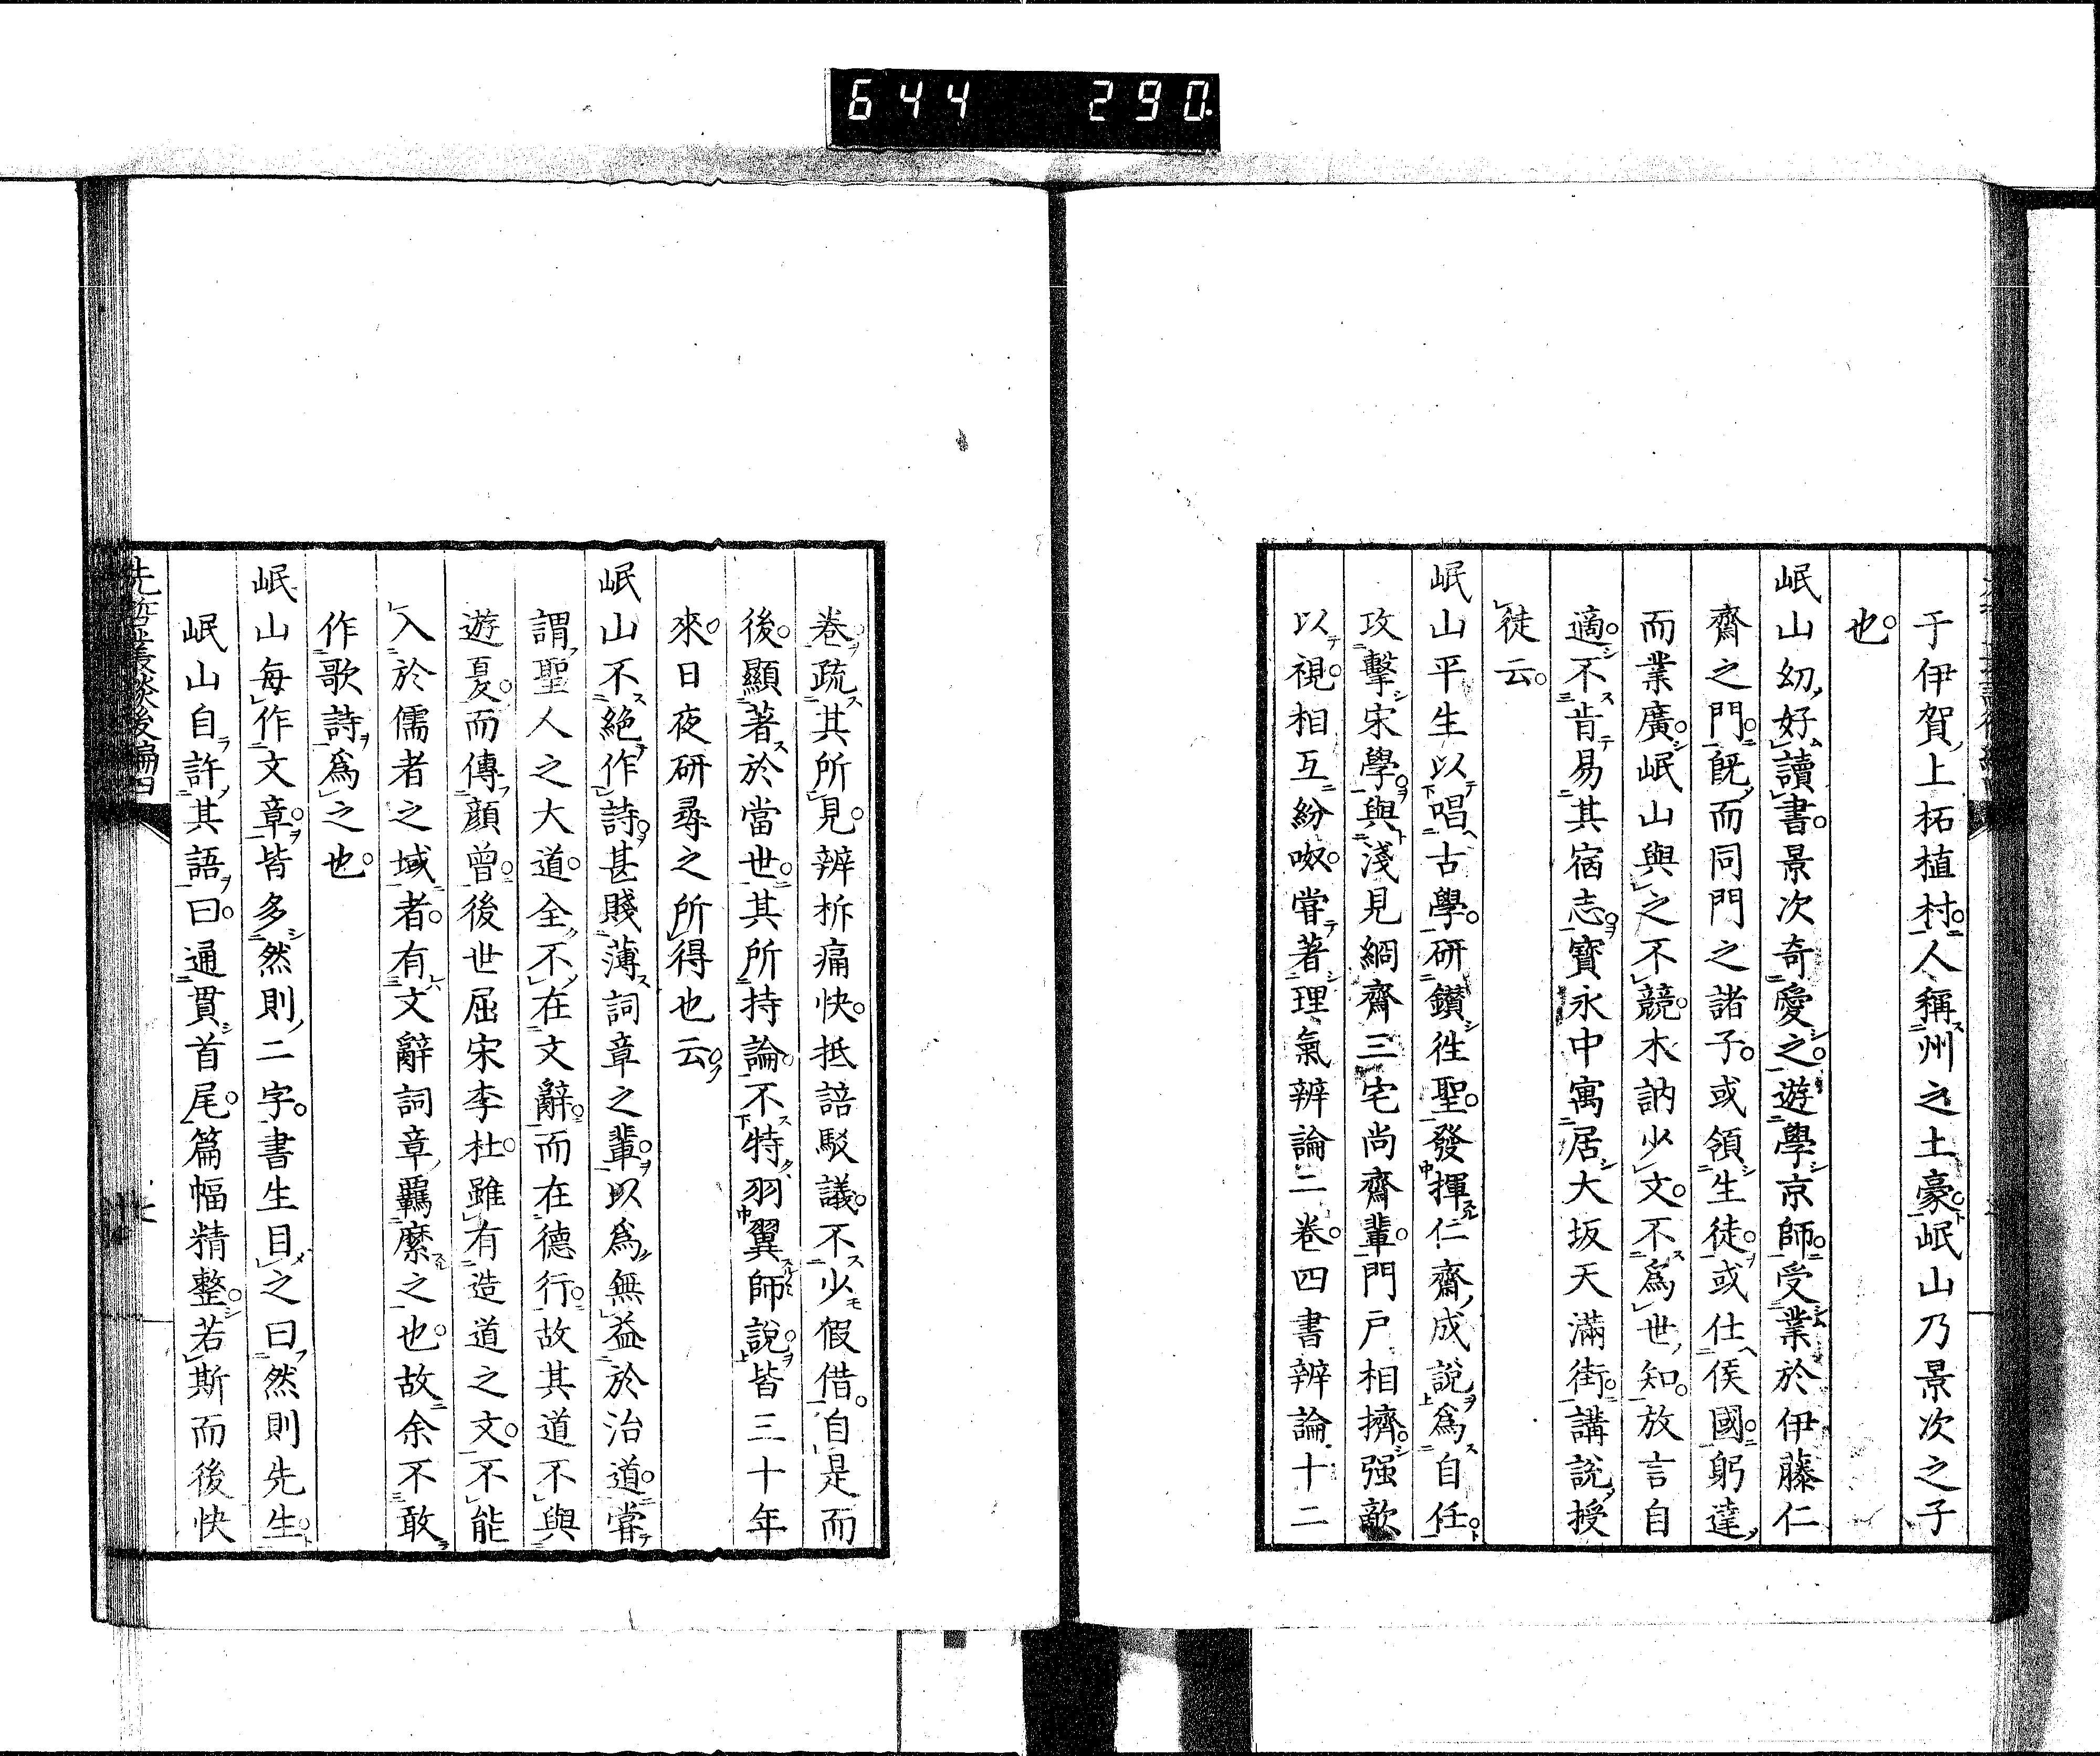 644 290
于伊賀上柘植村人稱州之土豪岷山乃景次之子
也
岷山幼好讀書景次奇愛之遊學京師受業於伊藤仁
齋之門既而同門之諸子或領生徒或仕侯國躬達
而業廣岷山與之不競木訥少文不爲世知放言自
適不肯易其宿志寳永中寓居大坂天滿街講說授
徒云
岷山平生以唱古學研鑚徃聖發揮仁齋成說爲自任
攻擊宋學與淺見絅齋三宅尚齋輩門戸相擠强敵
以視相互紛呶嘗著理氣辨論二卷四書辨論十二
卷疏其所見辨柝痛快抵諳駁議不少假借自是而
後顯著於當世其所持論不特羽翼師說皆三十年
來日夜研尋之所得也云
岷山不絕作詩甚賤薄詞章之輩以爲無益於治道嘗
謂聖人之大道全不在文辭而在德行故其道不與
遊夏而傳顔曾後世屈宋李杜雖有造道之文不能
入於儒者之域者有文辭詞章覊縻之也故余不敢
作歌詩爲之也
岷山每作文章皆多然則二字書生目之曰然則先生
岷山自許其語曰通貫首尾篇幅精整若斯而後快
先哲叢談後編四